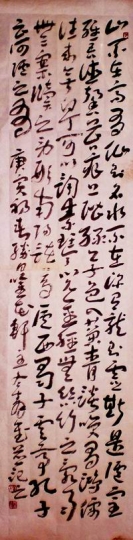 山不在高有仙則名水不在深有龍則靈斯是陋室
惟吾德馨苔痕上階綠草色入簾青談笑有鴻儒
往來無白丁可以調素琴閱金經無絲竹之亂耳
無案牘之勞形南陽諸葛廬西蜀子雲亭孔子
云何陋之有庚寅初春軒主